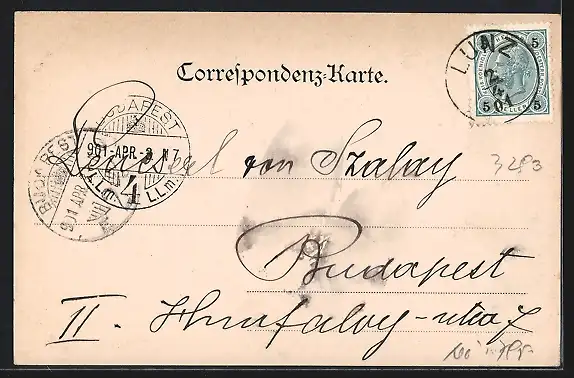 LUNZ
2/4
01
5 5
5 HELLER 5
Correspondenz-Karte.
BUDAPEST
901-APR-3 N7
4
BUDAPEST
901 APR
von Szalay
3283
Budapest
II. Hunfalvy-utca 7